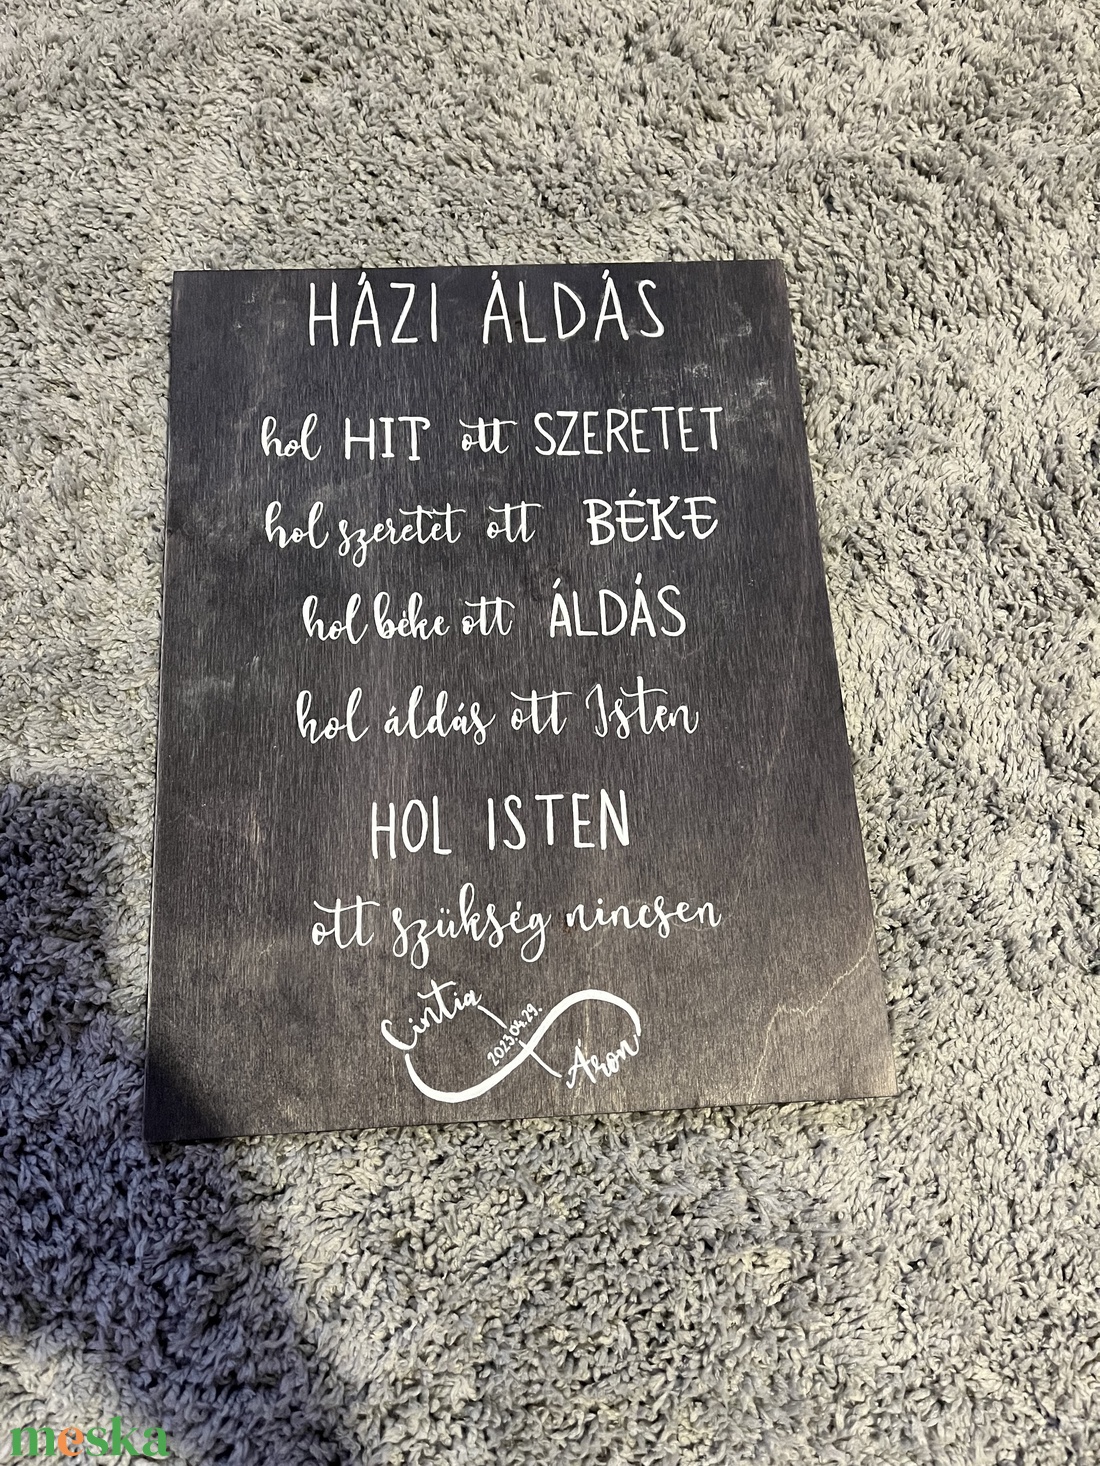 HÁZI ÁLDÁS
hol HIT ott SZERETET
hol szeretet ott BÉKE
hol béke ott ÁLDÁS
hol áldás ott Isten
HOL ISTEN
ott szükség nincsen
Cintia
2023.04.29.
Áron
meska